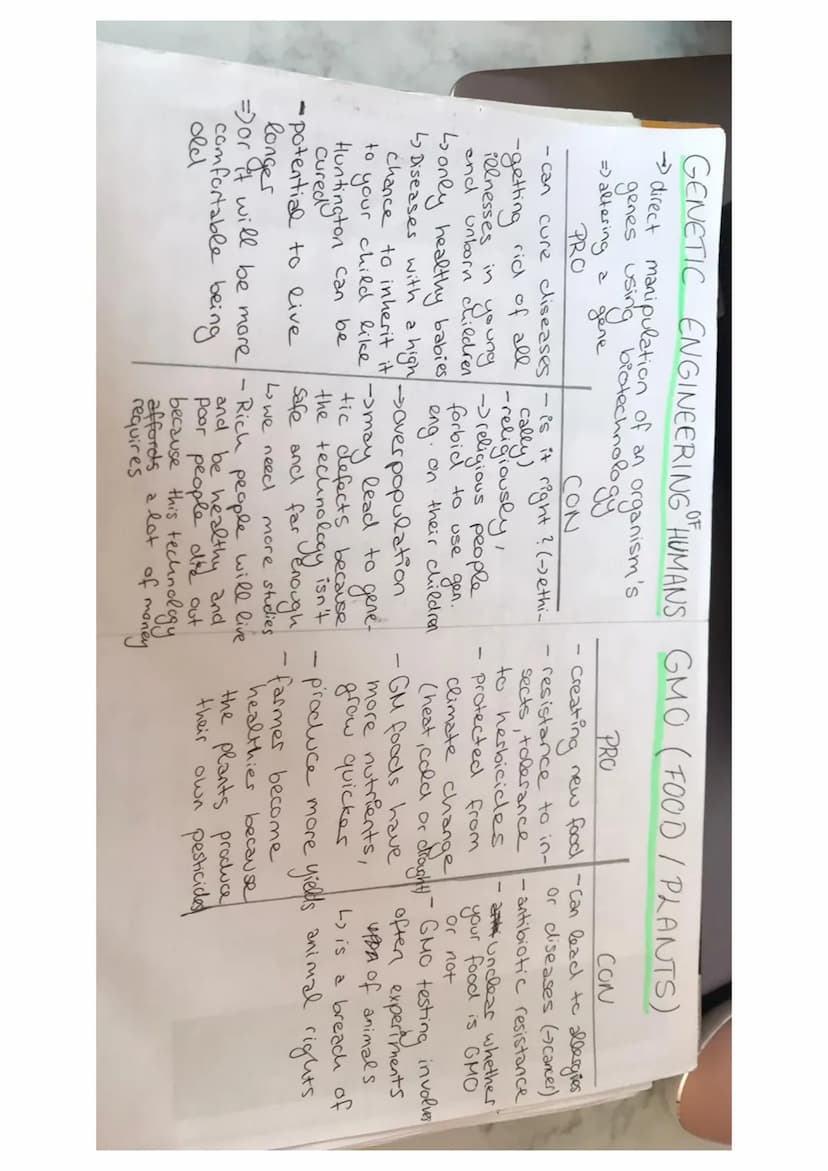 GENETIC ENGINEERING OF HUMANS
→ direct manipulation of an organism's
genes using biotechnology
⇒ altering a gene
PRO
- can cure diseases
- getting rid of all
illnesses in young
and unborn children
↳ only healthy babies
↳ Diseases with a high
chance to inherit it
to your child like
Huntington can be
cured
- potential to live
longer
⇒ or it will be more
comfortable being
old
CON
- is it right? (→ ethi-
cally)
- religiously,
→ religious people
forbid to use gen.
eng. on their children
→ overpopulation
→ may lead to gene-
tic defects because
the technology isn't
safe and far enough
↳ we need more studies
- Rich people will live
and be healthy and
poor people die out
because this technology
affords a lot of money
requires
GMO (FOOD / PLANTS)
PRO
- creating new food
- resistance to in-
sects, tolerance
to herbicicles
- protected from
climate change
(heat, cold or drought)
- GM foods have
more nutrients,
grow quicker
- produce more yields
- farmer become
healthier because
the plants produce
their own pesticides
CON
- can lead to allergies
or diseases (→ cancer)
- antibiotic resistance
- unclear whether
your food is GMO
or not
- GMO testing involves
often experiments
of animals
↳ is a breach of
animal rights